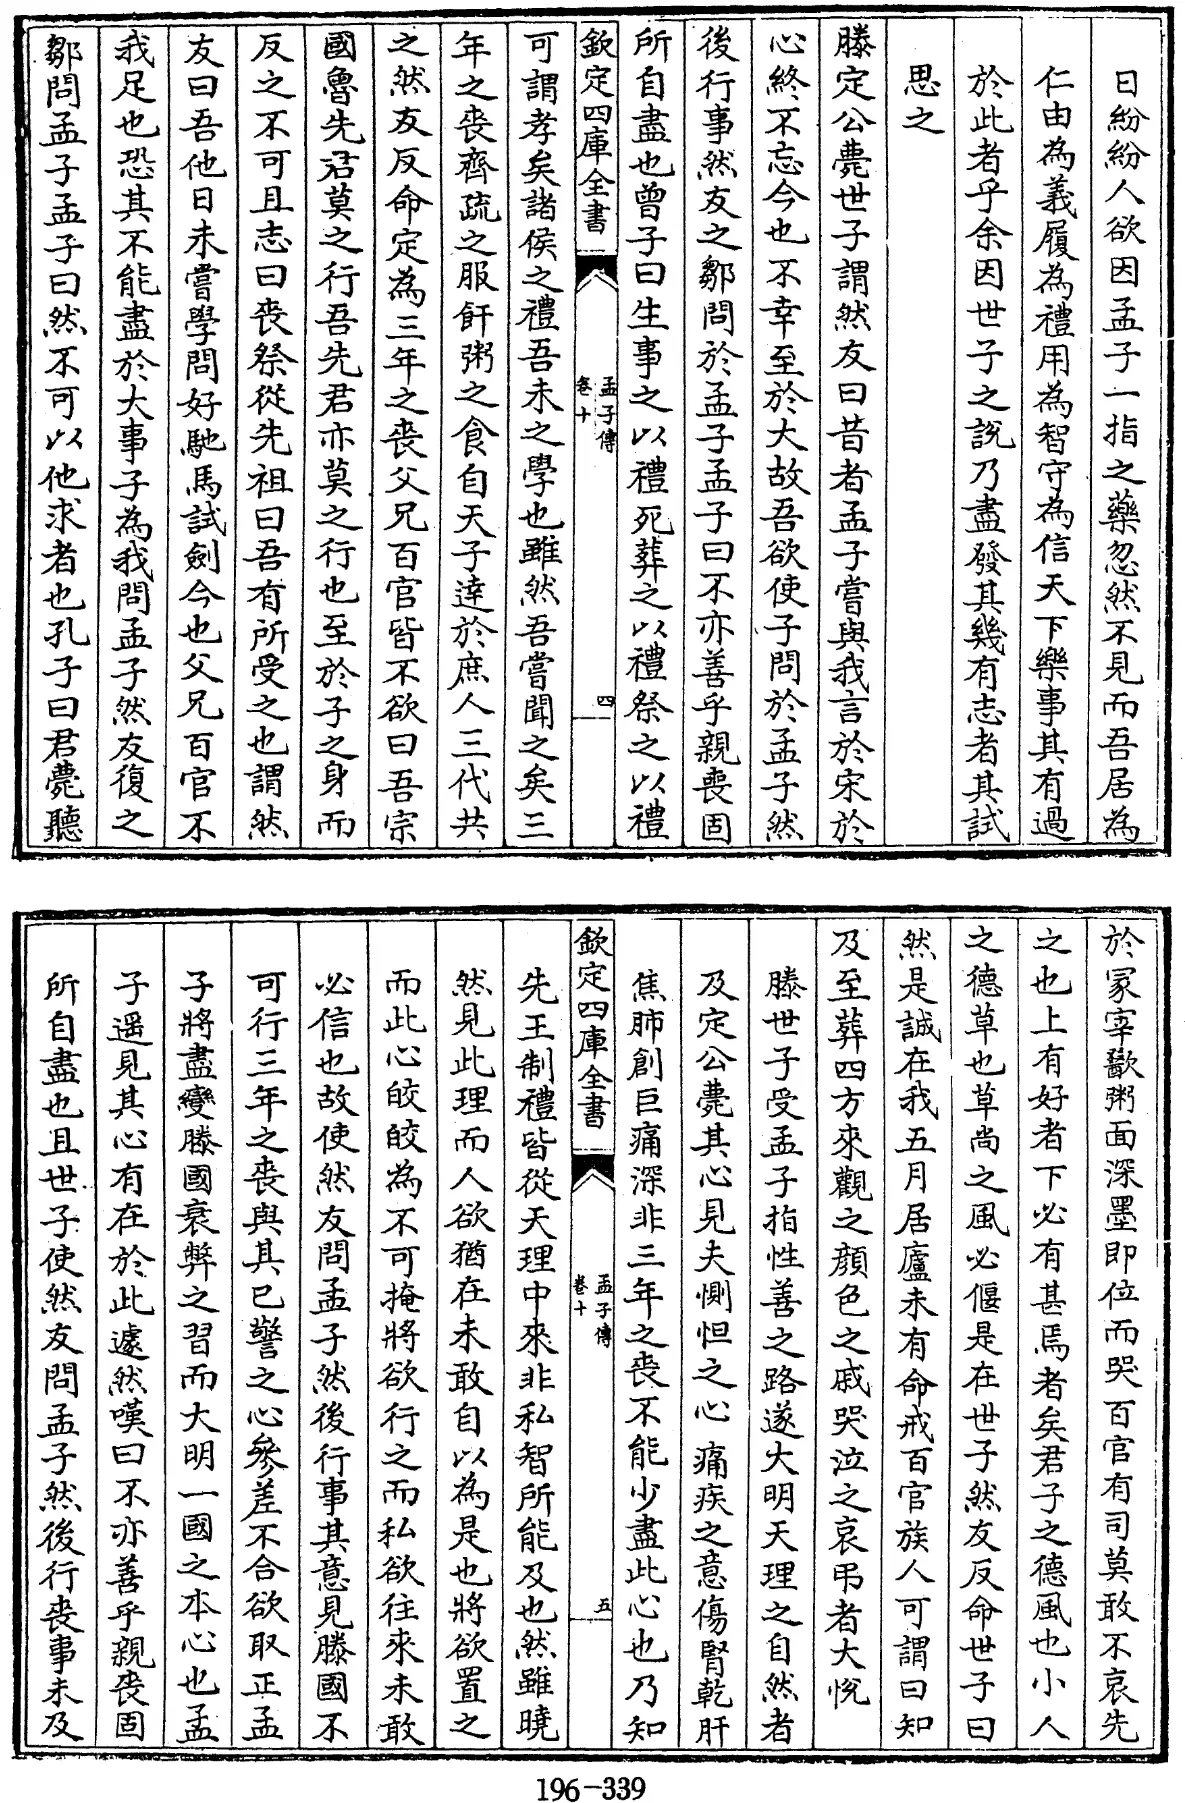 日紛紛人欲因孟子一指之藥忽然不見而吾居為
仁由為義履為禮用為智守為信天下樂事其有過
於此者乎余因世子之說乃盡發其幾有志者其試
思之
滕定公薨世子謂然友曰昔者孟子嘗與我言於宋於
心終不忘今也不幸至於大故吾欲使子問於孟子然
後行事然友之鄒問於孟子孟子曰不亦善乎親喪固
所自盡也曾子曰生事之以禮死葬之以禮祭之以禮
欽定四庫全書
孟子傳
卷十
四
可謂孝矣諸侯之禮吾未之學也雖然吾嘗聞之矣三
年之喪齊疏之服飦粥之食自天子達於庶人三代共
之然友反命定為三年之喪父兄百官皆不欲曰吾宗
國魯先君莫之行吾先君亦莫之行也至於子之身而
反之不可且志曰喪祭從先祖曰吾有所受之也謂然
友曰吾他日未嘗學問好馳馬試劍今也父兄百官不
我足也恐其不能盡於大事子為我問孟子然友復之
鄒問孟子孟子曰然不可以他求者也孔子曰君薨聽
於冢宰歠粥面深墨即位而哭百官有司莫敢不哀先
之也上有好者下必有甚焉者矣君子之德風也小人
之德草也草尚之風必偃是在世子然友反命世子曰
然是誠在我五月居廬未有命戒百官族人可謂曰知
及至葬四方來觀之顔色之戚哭泣之哀弔者大悅
滕世子受孟子指性善之路遂大明天理之自然者
及定公薨其心見夫惻怛之心痛疾之意傷腎乾肝
焦肺創巨痛深非三年之喪不能少盡此心也乃知
欽定四庫全書
孟子傳
卷十
五
先王制禮皆從天理中來非私智所能及也然雖曉
然見此理而人欲猶在未敢自以為是也將欲置之
而此心皎皎為不可掩將欲行之而私欲往來未敢
必信也故使然友問孟子然後行事其意見滕國不
可行三年之喪與其已警之心參差不合欲取正孟
子將盡變滕國衰弊之習而大明一國之本心也孟
子遥見其心有在於此遽然嘆曰不亦善乎親喪固
所自盡也且世子使然友問孟子然後行喪事未及
196-339